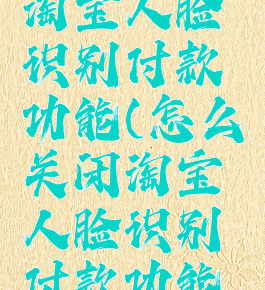 淘宝人脸
识别付款
功能(怎么
关闭淘宝
人脸识别
付款功能